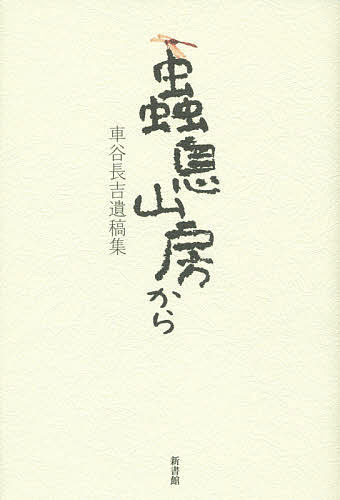 蟲息山房から
車谷長吉遺稿集
新書館